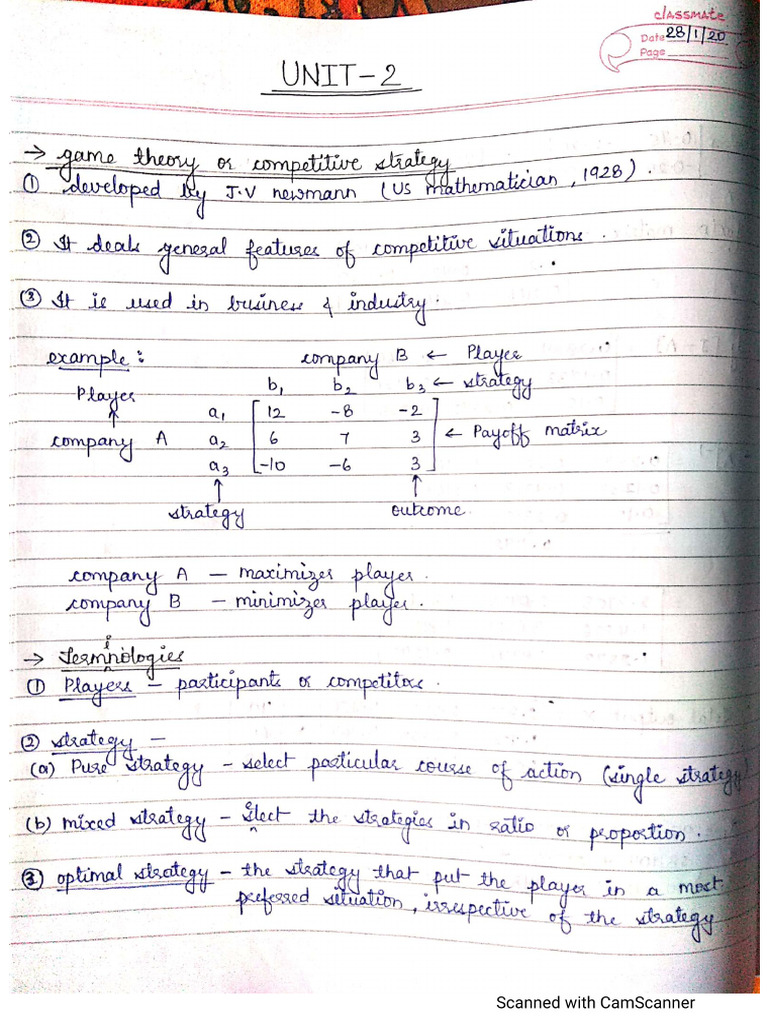 classmate
Date 28/1/20
Page
UNIT-2
→ game theory or competitive strategy
① developed by J.V newmann (US mathematician, 1928).
② It deals general features of competitive situations.
③ It is used in business & industry.
example: company B ← Player
Player b1 b2 b3 ← strategy
↑ a1 [ 12 -8 -2 ]
company A a2 [ 6 7 3 ] ← Payoff matrix
a3 [ -10 -6 3 ]
↑ ↑
strategy outcome
company A – maximizer player.
company B – minimizer player.
→ Terminologies
① Players – participants or competitors.
② strategy –
(a) Pure strategy – select particular course of action (single strategy)
(b) mixed strategy – select the strategies in ratio or proportion.
③ optimal strategy – the strategy that put the player in a most
preferred situation, irrespective of the strategy
Scanned with CamScanner